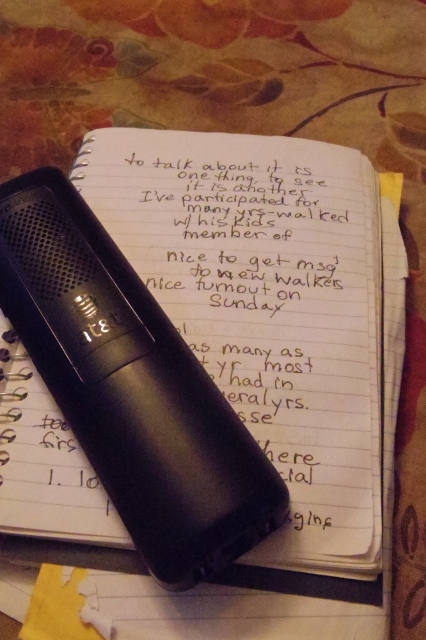 to talk about it is
one thing, to see
it is another
I've participated for
many yrs-walked
w/his kids
member of
nice to get msg
to new walkers
nice turnout on
Sunday
at&t
as many as
yr most
had in
yrs.
there
1.